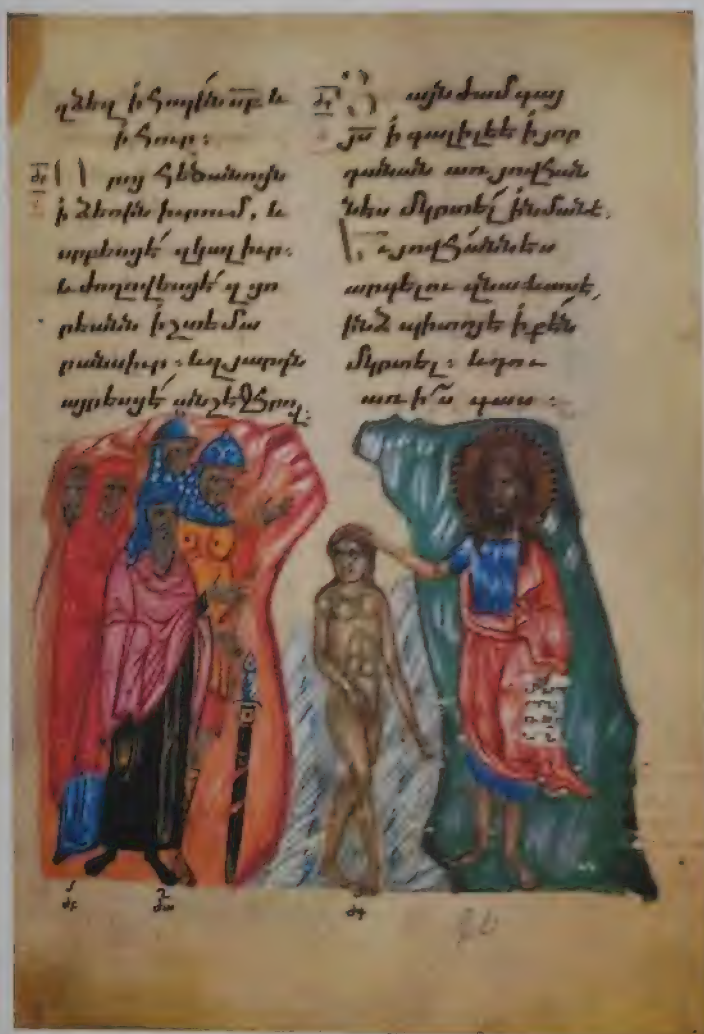 զձեզ ի հոգին սբ և
ի հուր:
Որոյ հեծանոցն
ի ձեռին իւրում, և
սրբեսցէ զկալ իւր.
և ժողովեսցէ զցո
րեանն ի շտեմա
րանս իւր. և զյարդն
այրեսցէ անշէջ հրով:
Յայնժամ գայ
յս ի գալիլեէ ի յոր
դանան առ յովհան
նէս մկրտել ի նմանէ.
Եւ յովհաննէս
արգելոյր զնա և ասէ,
ինձ պիտոյ է ի քէն
մկրտել. և դու
առ իս գաս: